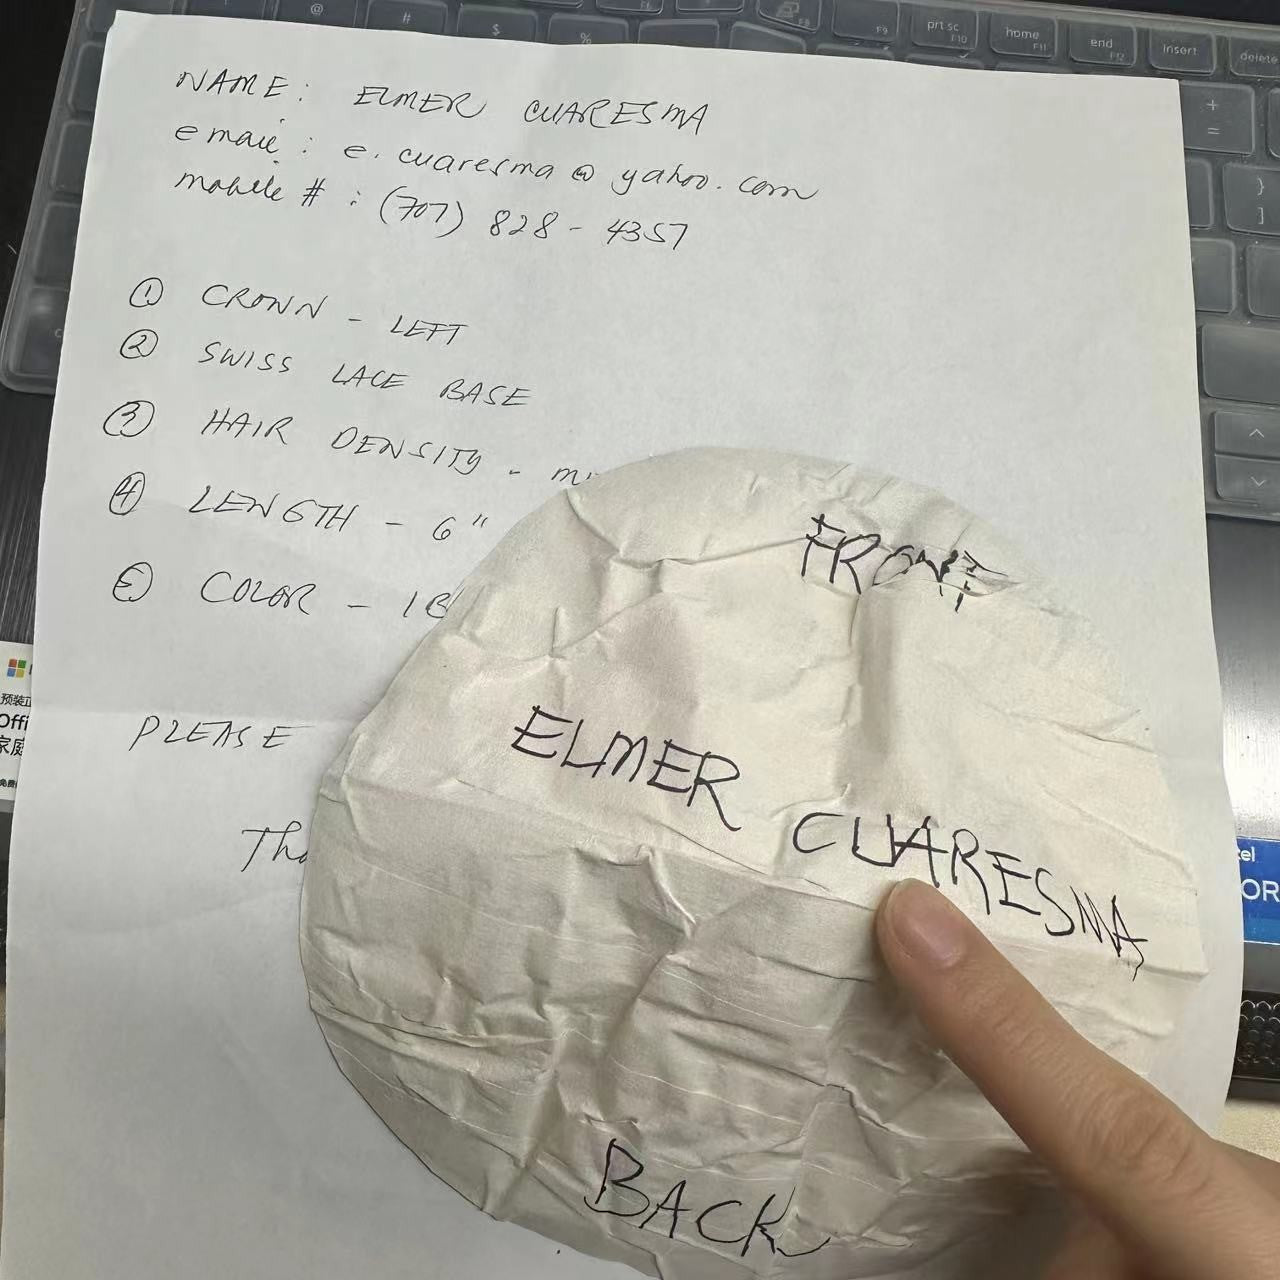 NAME: ELMER CUARESMA
email: e.cuaresma@yahoo.com
mobile #: (707) 828-4357
① CROWN - LEFT
② SWISS LACE BASE
③ HAIR DENSITY -
④ LENGTH - 6"
⑤ COLOR - 1B
PLEASE
FRONT
ELMER CUARESMA
BACK
@
#
$
%
F8
F9
prt sc
F10
home
F11
end
F12
insert
delete
+
=
}
]
预装正
Offi
家庭
免费